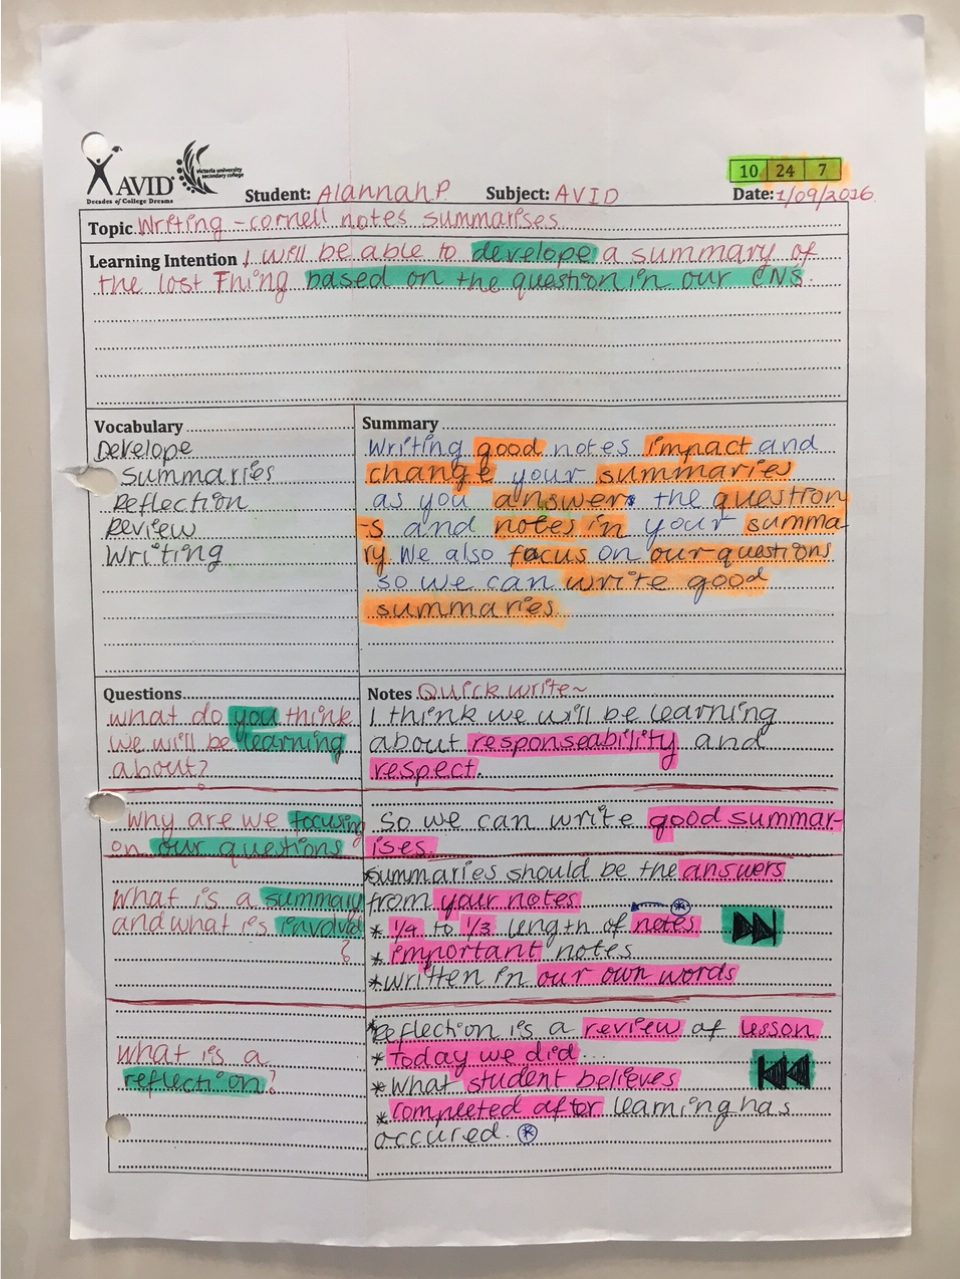 AVID
Decades of College Dreams
victoria university
secondary college
10 24 7
Student: Alannah P Subject: AVID Date: 1/09/2016
Topic Writing - cornell notes summarises
Learning Intention I will be able to develope a summary of
the lost Thing based on the question in our CNS.
Vocabulary
Develope
Summaries
Reflection
Review
Writing
Summary
Writing good notes impact and
change your summaries
as you answer the question
-s and notes in your summa-
ry. We also focus on our questions
so we can write good
summaries.
Questions
what do you think
we will be learning
about?
Notes Quick write~
I think we will be learning
about responseability and
respect.
Why are we focusing
on our questions
So we can write good summar-
ises.
What is a summary
and what is involved
?
Summaries should be the answers
from your notes
* 1/4 to 1/3 length of notes
* important notes
* written in our own words
What is a
reflection?
* Reflection is a review of lesson
* today we did...
* what student believes
* completed after learning has
occured.